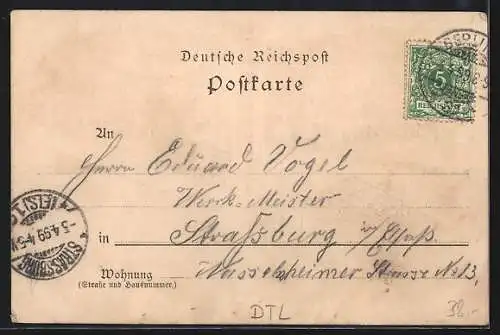 Deutsche Reichspost
Postkarte
BERLIN
5
REICHSPOST
An
Herrn Eduard Vogel
Werk-Meister
in Strassburg i/Elsaß
Wasselnheimer Strasse No 13.
Wohnung
(Straße und Hausnummer)
STRASSBURG
-3.4.99.4-5N
(ELS) 1.
DTL
32.-